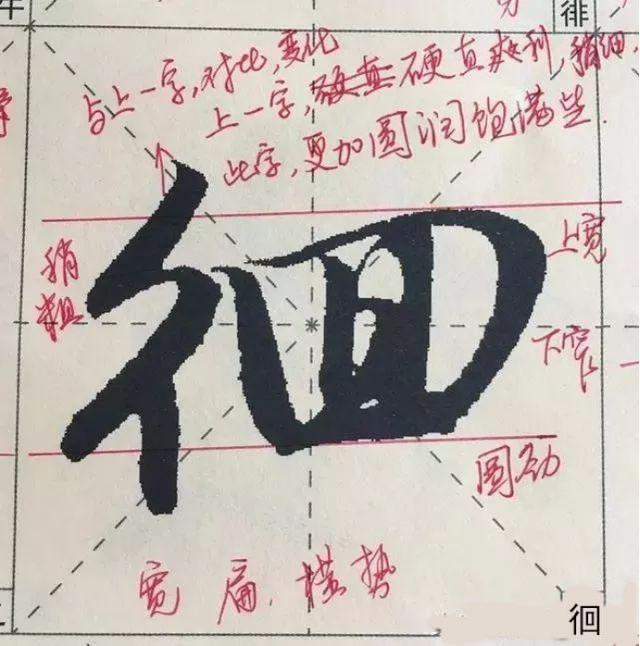 徘
与上一字,对比,变化
上一字,硬直爽利,稍细
此字,更加圆润饱满些.
稍粗
徊
上宽
下窄
圆劲
宽扁.横势
徊